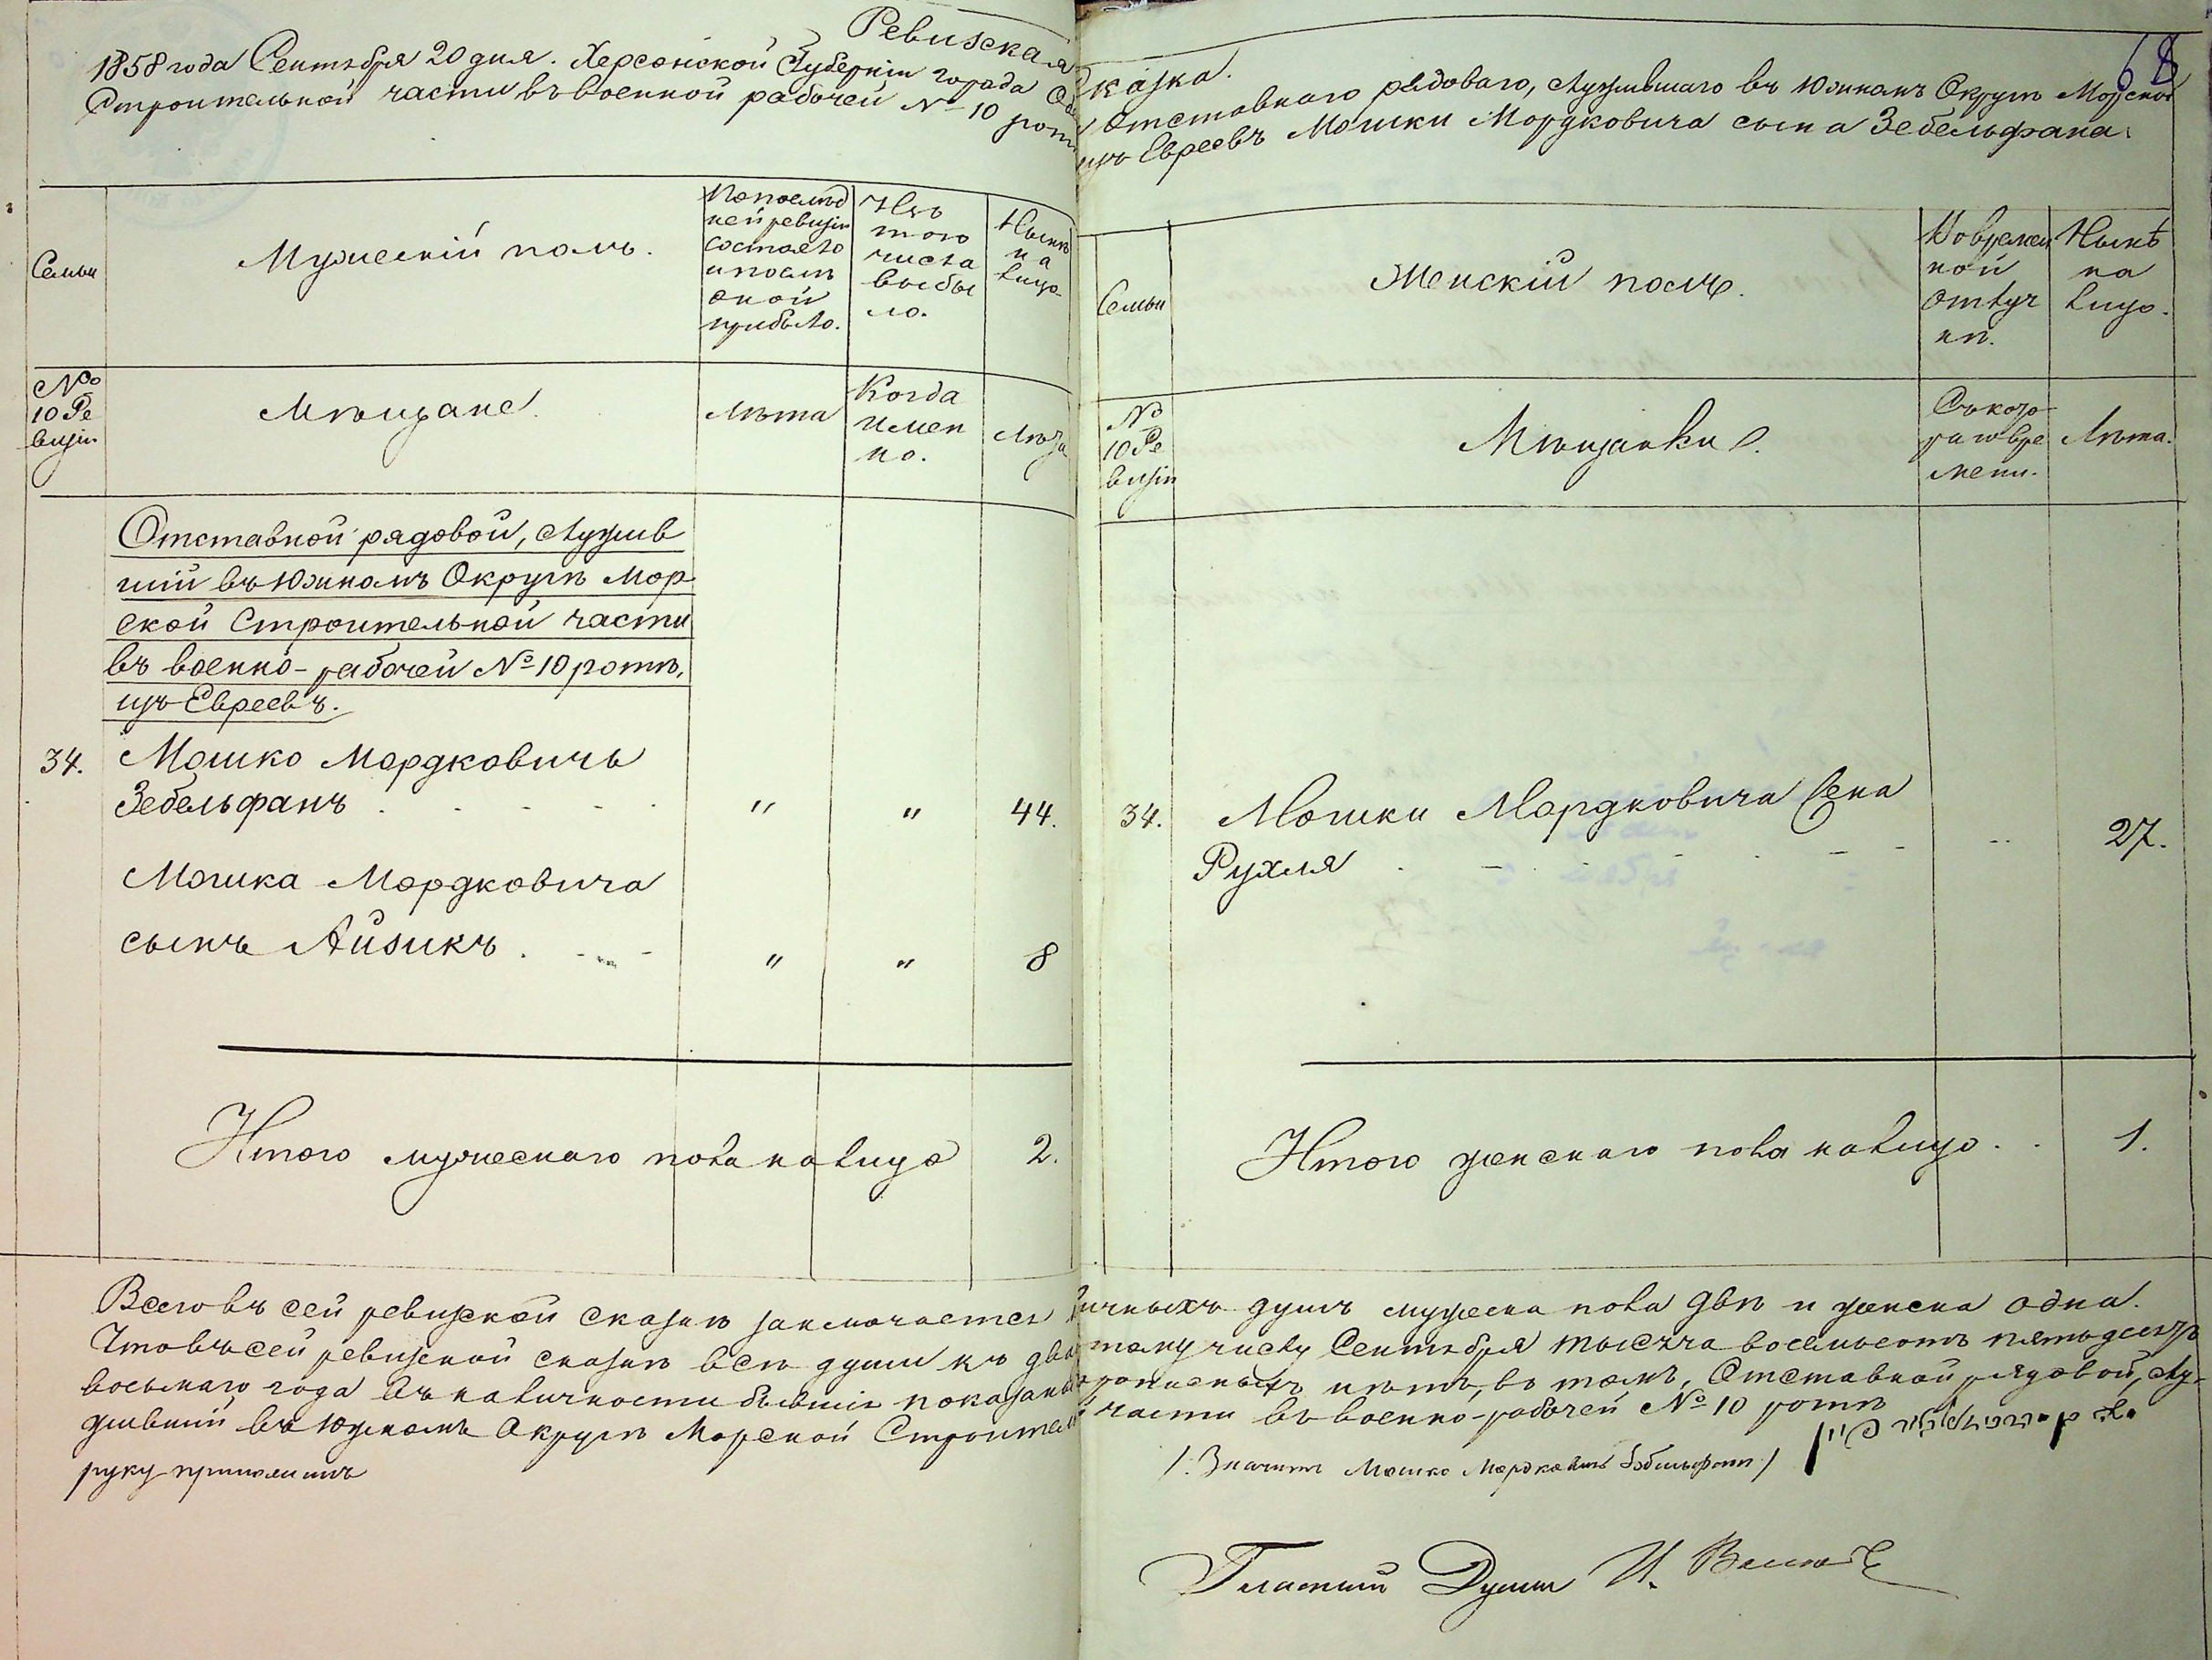 Ревизская
1858 года Сентября 20 дня. Херсонской Губерніи города
Строительной части въ военной рабочей № 10
Семьи
Мужескій полъ.
По послѣд
ней ревизіи
состояло
и послѣ
оной
прибыло.
Изъ
того
числа
выбы
ло.
Нынѣ
на
лицо.
№
10 Ре
визіи
Мѣщане.
Лѣта
Когда
имен
но.
Лѣта
Отставной рядовой, служив
шій въ Южномъ Округѣ Мор
ской Строительной части
въ военно-рабочей № 10 ротѣ,
изъ Евреевъ.
34. Мошко Мордковичъ
Зебельфанъ . . . . . " " 44.
Мошка Мордковича
сынъ Айзикъ . . . " " 8
Итого мужескаго пола на лицо 2.
Всего въ сей ревизской сказкѣ заключается
Что въ сей ревизской сказкѣ всѣ души къ
восьмаго года въ наличности бывшія
живший въ Южномъ Округѣ Морской
руку приложилъ
68
сказка.
отставнаго рядоваго, служившаго въ Южномъ Округѣ Морской
изъ Евреевъ Мошки Мордковича сына Зебельфана.
Семьи
Женскій полъ.
Во времен
ной
отлуч
кѣ.
Нынѣ
на
лицо.
№
10 Ре
визіи
Мѣщанки.
Съ кото
раго вре
мени.
Лѣта.
34. Мошки Мордковича жена
Рухля . - . - . - - .. 27.
Итого женскаго пола на лицо . . 1.
душъ мужеска пола двѣ и женска одна.
тому числу Сентября тысяча восемьсотъ пятьдесятъ
нѣтъ, въ томъ, Отставной рядовой, слу-
части въ военно-рабочей № 10 ротѣ
/: Значитъ Мошко Мордковичъ Зебельфанъ /
Гласный Думы И.